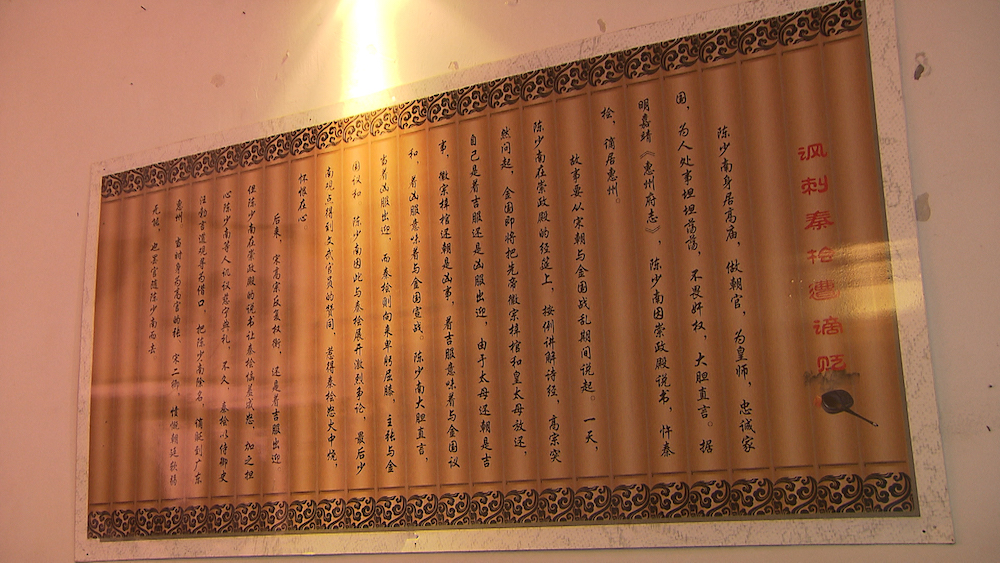 讽刺秦桧遭谪贬
陈少南身居高庙，做朝官，为皇师，忠诚家
国，为人处事坦坦荡荡，不畏奸权，大胆直言。据
明嘉靖《惠州府志》，陈少南因崇政殿说书，忤秦
桧，谪居惠州。
故事要从宋朝与金国战乱期间说起。一天，
陈少南在崇政殿的经筵上，按例讲解诗经，高宗突
然问起，金国即将把先帝徽宗梓棺和皇太母放还，
自己是着吉服还是凶服出迎，由于太母还朝是吉
事，徽宗梓棺还朝是凶事，着吉服意味着与金国议
和，着凶服意味着与金国宣战。陈少南大胆直言，
当着凶服出迎，而秦桧则向来卑躬屈膝，主张与金
国议和，陈少南因此与秦桧展开激烈争论，最后少
南观点得到文武官员的赞同，惹得秦桧怒火中烧，
怀恨在心
后来，宋高宗反复权衡，还是着吉服出迎
但陈少南在崇政殿的说书让秦桧恼羞成怒，加之担
心陈少南等人议慈宁典礼，不久，秦桧以侍御史
汪勃言道观等为借口，把陈少南除名，谪贬到广东
惠州 当时身为高官的张 宋二卿，情慨朝廷软弱
无能，也罢官随陈少南而去